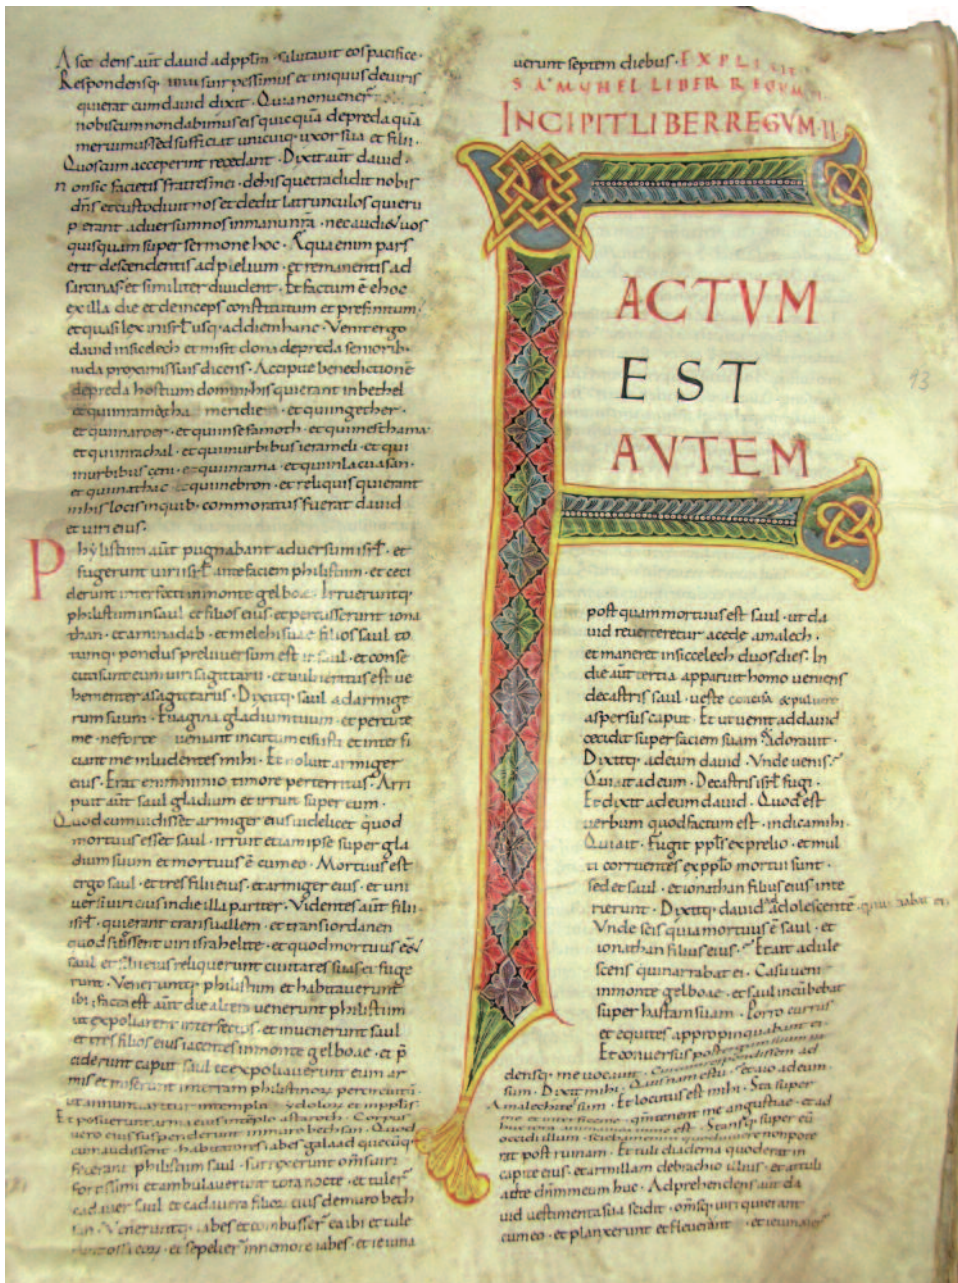 Ascendens aut̄ david ad pp̄lm · salutavit eos pacifice ·
Respondensq· vir pessimus et iniquus de viris
quierat cum david dixit · Quia non vener̄
nobiscum non dabimus eis quicquā de preda quā
meruimus sed sufficiat unicuiq· uxor sua et filii ·
Quos cum acceperint recedant · Dixit aut̄ david ·
non sic facietis fratres mei · de his que tradidit nobis
dn̄s et custodivit nos et dedit latrunculos qui eru
perant adversum nos in manu nr̄a · nec audiet vos
quisquam super sermone hoc · Aequa enim pars
erit descendentis ad prelium · et remanentis ad
sarcinas et similiter divident · Et factum ē ehoc
ex illa die et deinceps constitutum et prefinitum
et quasi lex in isrl̄ usq· ad diem hanc · Venit ergo
david in sicelech et misit dona de preda seniorib·
iuda proximis suis dicens · Accipite benedictionē
de preda hostium domini his qui erant in bethel
et qui in ramotha meridie · et qui in gether ·
et qui in aroer · et qui in sefamoth · et qui in esthama
et qui in rachal · et qui in urbibus ierameli · et qui
in urbibus ceni · et qui in rama · et qui in lacu asan ·
et qui in athac et qui in ebron · et reliquis qui erant
in his locis in quib· commoratus fuerat david
et viri eius ·
Phylistim aut̄ pugnabant adversum isrl̄ · et
fugerunt viri isrl̄ ante faciem philistim · et ceci
derunt interfecti in monte gelboe · Irrueruntq·
philistim in saul et filios eius et percusserunt iona
than · et aminadab · et melchisuae filios saul to
tumq· pondus prelii versum est in saul · et conse
cuti sunt eum viri sagittarii · et vulneratus est ve
hementer a sagittariis · Dixitq· saul ad armige
rum suum · Evagina gladium tuum · et percute
me · ne forte veniant incircumcisi isti et interfi
ciant me inludentes mihi · Et noluit armiger
eius · Erat enim nimio timore perterritus · Arri
puit aut̄ saul gladium et irruit super eum ·
Quod cum vidisset armiger eius videlicet quod
mortuus esset saul · irruit etiam ipse super gla
dium suum et mortuus ē cum eo · Mortuus est
ergo saul · et tres filii eius · et armiger eius · et uni
versi viri eius in die illa pariter · Videntes aut̄ filii
isrl̄ · qui erant trans vallem · et trans iordanen
quod fugissent viri israhelite · et quod mortuus eēt
saul et filii eius reliquerunt civitates suas et fuge
runt · Veneruntq· philistim et habitaverunt
ibi · facta est aut̄ die altera venerunt philistim
ut expoliarent interfectos · et invenerunt saul
et tres filios eius iacentes in monte gelboe · et p̄
ciderunt caput saul et expoliaverunt eum ar
mis et miserunt in terram philistinoꝝ per circuitū
ut annuntiaretur in templo ydoloꝝ et in pp̄lis
Et posuerunt arma eius in tēplo astaroth · Corpus
vero eius suspenderunt in muro bethsan · Quod
cum audissent habitatores iabes galaad quecūq·
fecerant philistim saul · surrexerunt om̄s viri
fortissimi et ambulaverunt tota nocte · et tuler̄
cadaver saul et cadavera filioꝝ eius de muro beth
san · Veneruntq· iabes et combusser̄ ea ibi et tule
runt ossa eoꝝ · et sepelier̄ in nemore iabes · et ieiuna
verunt septem diebus · EXPLICIT
SAMVHEL LIBER REGVM
INCIPIT LIBER REGVM · II
FACTVM
EST
AVTEM
postquam mortuus est saul · ut da
vid reverteretur a cede amalech ·
et maneret in siccelech duos dies · In
die aut̄ tertia apparuit homo veniens
de castris saul · veste conscisa et pulvere
aspersus caput · Et ut venit ad david
cecidit super faciem suam et adoravit ·
Dixitq· ad eum david · Unde venis ·
Qui ait ad eum · De castris isrl̄ fugi ·
Et dixit ad eum david · Quod est
verbum quod factum est · indica mihi ·
Qui ait · Fugit pp̄ls ex prelio · et mul
ti corruentes ex pp̄lo mortui sunt ·
sed et saul · et ionathan filius eius inte
rierunt · Dixitq· david ad adolescentē · qui narrabat ei ·
Unde scis quia mortuus ē saul · et
ionathan filius eius · Et ait adule
scens qui narrabat ei · Casu veni
in monte gelboe · et saul incūbebat
super hastam suam · Porro currus
et equites appropinquabant ei ·
Et conversus post tergum suum vi
densq· me vocavit · Cui cum respondissem ad
sum · Dixit mihi · Quis nam es tu · et aio ad eum ·
Amalechites sum · Et locutus est mihi · Sta super
me et interfice me · qm̄ tenent me angustiae · et ad
huc tota anima mea in me est · Stansq· super eū
occidi illum · sciebam enim quod vivere non pote
rat post ruinam · Et tuli diadema quod erat in
capite eius · et armillam de brachio illius · et attuli
ad te dn̄m meum huc · Adprehendens aut̄ da
vid vestimenta sua scidit · om̄sq· viri qui erant
cum eo · et planxerunt et fleverunt · et ieiunaver̄
93